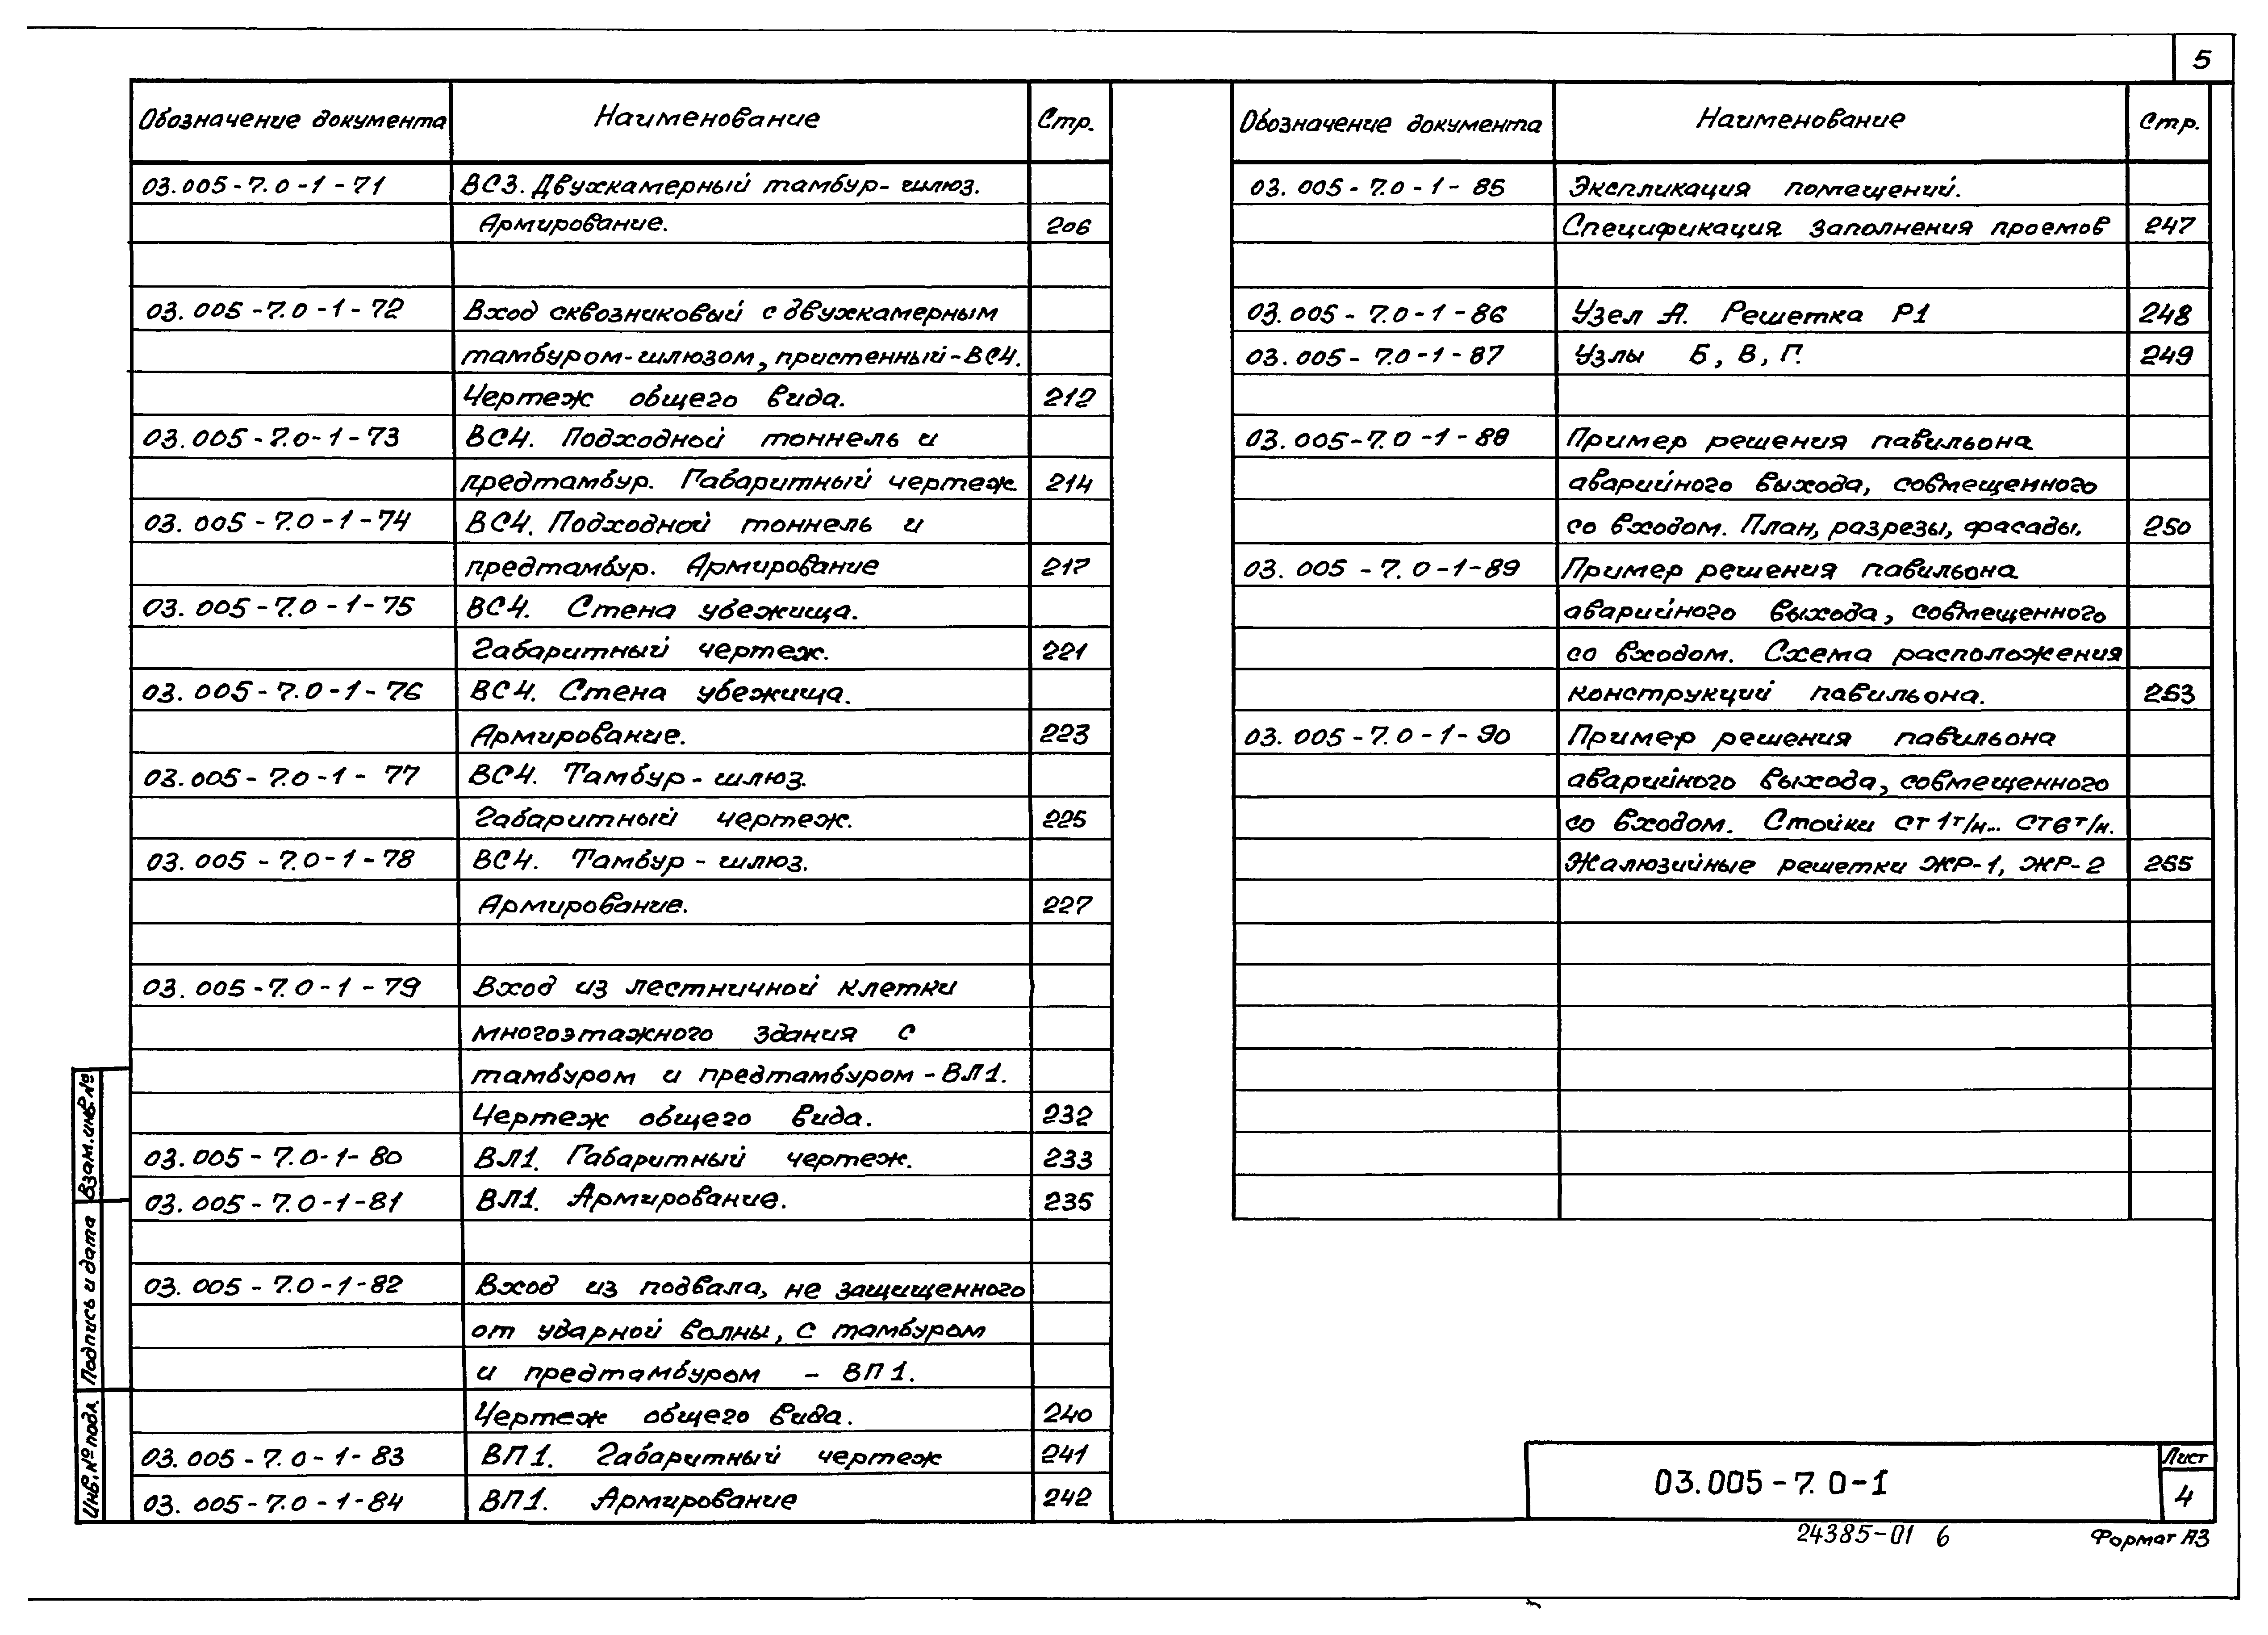 5
Обозначение документа Наименование Стр.
03.005-7.0-1-71 ВС3. Двухкамерный тамбур-шлюз.
Армирование. 206
03.005-7.0-1-72 Вход сквозниковый с двухкамерным
тамбуром-шлюзом, пристенный-ВС4.
Чертеж общего вида. 212
03.005-7.0-1-73 ВС4. Подходной тоннель и
предтамбур. Габаритный чертеж 214
03.005-7.0-1-74 ВС4. Подходной тоннель и
предтамбур. Армирование 217
03.005-7.0-1-75 ВС4. Стена убежища.
Габаритный чертеж. 221
03.005-7.0-1-76 ВС4. Стена убежища.
Армирование. 223
03.005-7.0-1-77 ВС4. Тамбур-шлюз.
Габаритный чертеж. 225
03.005-7.0-1-78 ВС4. Тамбур-шлюз.
Армирование. 227
03.005-7.0-1-79 Вход из лестничной клетки
многоэтажного здания с
тамбуром и предтамбуром-ВЛ1.
Чертеж общего вида. 232
03.005-7.0-1-80 ВЛ1. Габаритный чертеж. 233
03.005-7.0-1-81 ВЛ1. Армирование. 235
03.005-7.0-1-82 Вход из подвала, не защищенного
от ударной волны, с тамбуром
и предтамбуром - ВП1.
Чертеж общего вида. 240
03.005-7.0-1-83 ВП1. Габаритный чертеж 241
03.005-7.0-1-84 ВП1. Армирование 242
Обозначение документа Наименование Стр.
03.005-7.0-1-85 Экспликация помещений.
Спецификация заполнения проемов 247
03.005-7.0-1-86 Узел А. Решетка Р1 248
03.005-7.0-1-87 Узлы Б, В, Г. 249
03.005-7.0-1-88 Пример решения павильона
аварийного выхода, совмещенного
со входом. План, разрезы, фасады. 250
03.005-7.0-1-89 Пример решения павильона
аварийного выхода, совмещенного
со входом. Схема расположения
конструкций павильона. 253
03.005-7.0-1-90 Пример решения павильона
аварийного выхода, совмещенного
со входом. Стойки Ст1т/н... Ст6т/н.
Жалюзийные решетки ЖР-1, ЖР-2 255
Взам. инв. №
Подпись и дата
Инв. № подл.
03.005-7.0-1
Лист
4
24385-01 6
Формат А3